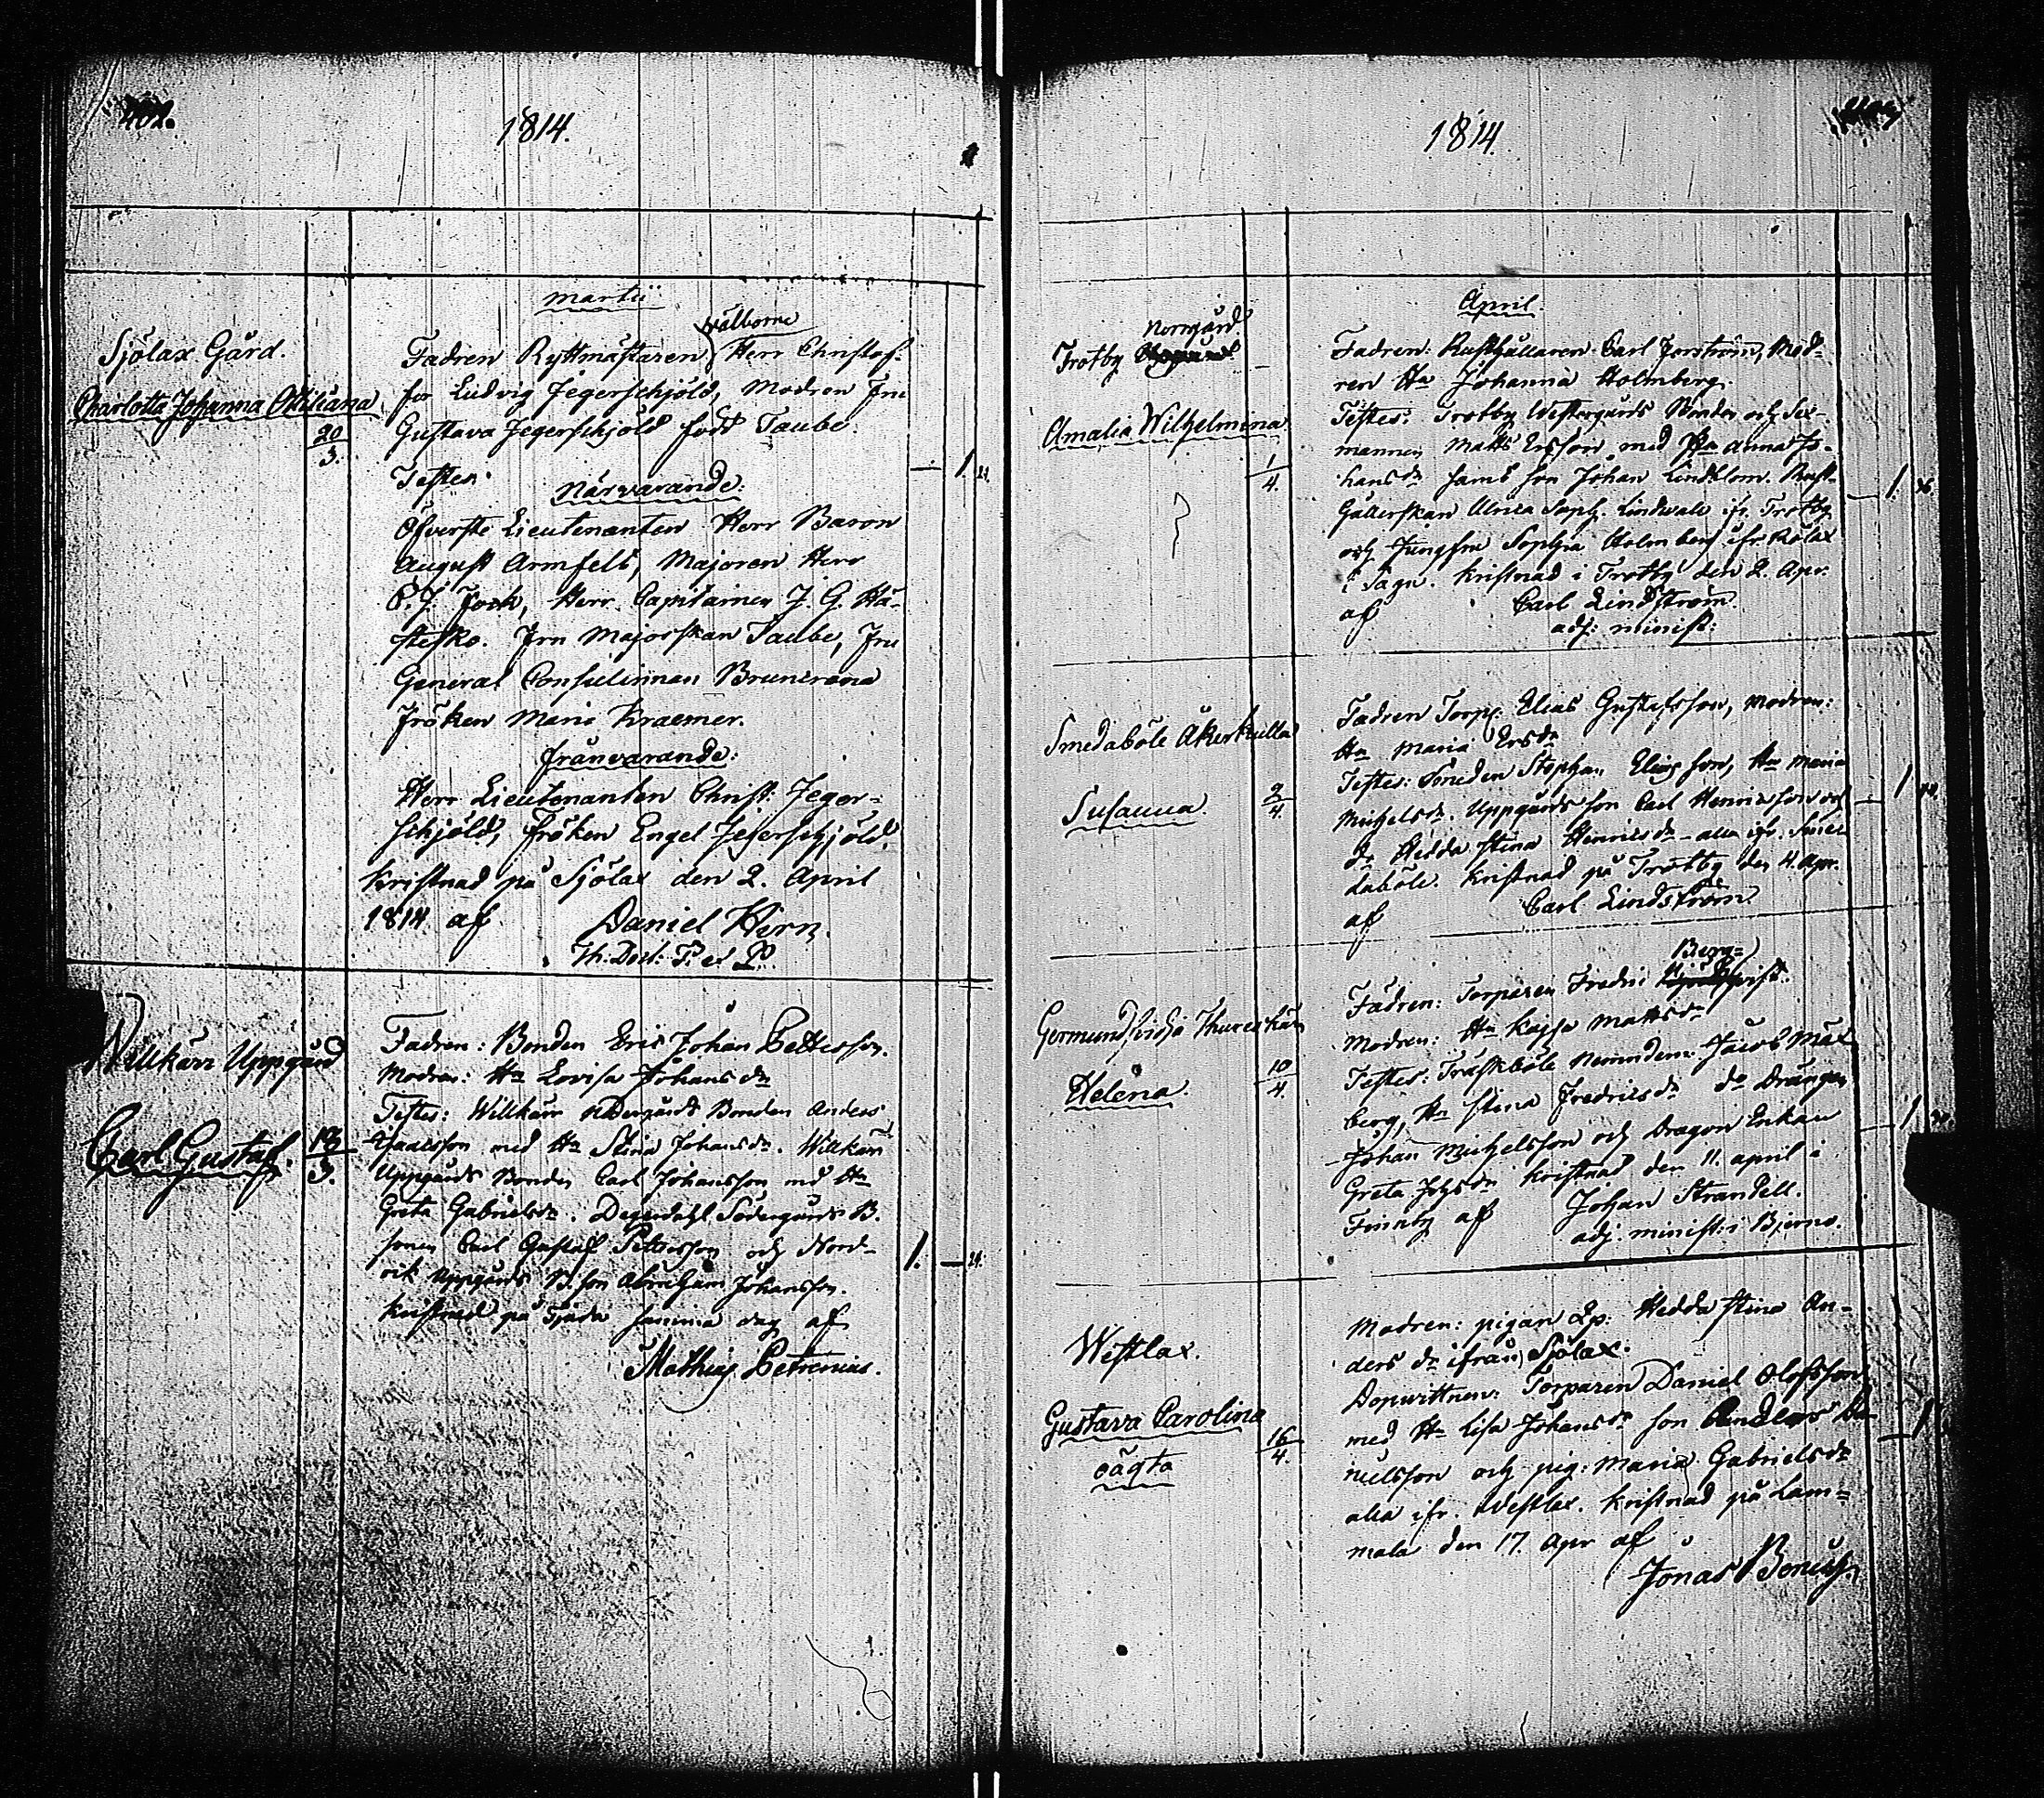 402.
1814.
Martii
Sjölax Gård.
Charlotta Johanna Ottiliana
20/3.
Fadren Ryttmästaren Wälborne Herr Christof-
fer Ludvig Jegerschjöld, Modren Fru
Gustava Jegerschjöld född Taube.
Testes. Närvarande:
Öfverste Lieutenanten Herr Baron
August Armfelt, Majoren Herr
Fock, Herr Capitainen J. G. Hä-
stesko. Fru Majorskan Taube, Fru
General Consulinnan
Fröken Marie Kraemer.
frånvarande:
Herr Lieutenanten Christ: Jeger-
schjöld, Fröken Engel Jegerschjöld.
Kristnad på Sjölax den 2. April
1814 af Daniel
Th. Doct: P. et P.
1. 24.
Willkärr Uppgård
Carl Gustaf.
Fadren: Bonden Eric Johan Pettersson.
Modren: Hu Lovisa Johans dr
Testes: Willkärr Nedergårds Bonden Anders
Isaacsson med Hu Stina Johansdr. Willkärr
Uppgårds Bonden Carl Johansson med Hu
Greta Gabrielsdr. Degerdahl Södergårds B.
sonen Carl Gustaf Pettersson och Nord-
vik Uppgårds B. son Abraham Johansson.
Kristnad på samma dag af
Mathias Petrenius.
1. 24.
1814.
April.
Trotby Norrgård
Amalia Wilhelmina
1/4.
Fadren: Rusthållaren Carl Jernström, Mod-
ren Hu Johanna Holmberg.
Testes: Trotby Westergårds Bonden och Sex-
mannen Matts Ersson med Hu Anna Jo-
hansdr samt son Johan Lindblom. Rust-
hållerskan Ulrica Soph. Lindwall ifr. Trotby
och Jungfru Sophia Holmberg ifr Rölax
i Sagu. Kristnad i Trotby den 2. Apr.
af Carl Lindström.
adj: minist:
1.
Smedaböle Åkerkulla
Susanna.
2/4.
Fadren Torp: Elias Gustafsson, Modren:
Hu Maria Ersdr
Testes: Smeden Stephan Eliasson, Hu Maria
Michelsdr. Uppgårds son Carl Henricsson och
dr Hedda Stina Henricsdr alla ifr. Smed-
daböle. Kristnad på Trotby den 4. Apr.
af Carl Lindström.
1
Germundsvidja
Helena.
10/4.
Fadren: Torparen Fredric Berg-
qvist.
Modren: Hu Kajsa Mattsdr
Testes: Träskböle Nämndem: Jacob Mäx-
berg, Hu Stina Fredricsdr do Drängen
Johan Michelsson och Dragon Enkan
Greta Johsdr Kristnad den 11. april i
Finnby af Johan Strandell.
adj. minist: i Bjerno.
1
Westlax.
Gustava Carolina
oägta
16/4.
Modren: pigan Lp: Hedda Stina An-
ders dr ifrån Sjölax.
Dopwittnen: Torparen Daniel Olofsson
med Hu Lisa Johansdr son Anders Da-
nielsson och pig: Maria Gabrielsdr
alla ifr. Westlax. Kristnad på Lam-
mala den 17. Apr af
Jonas
1